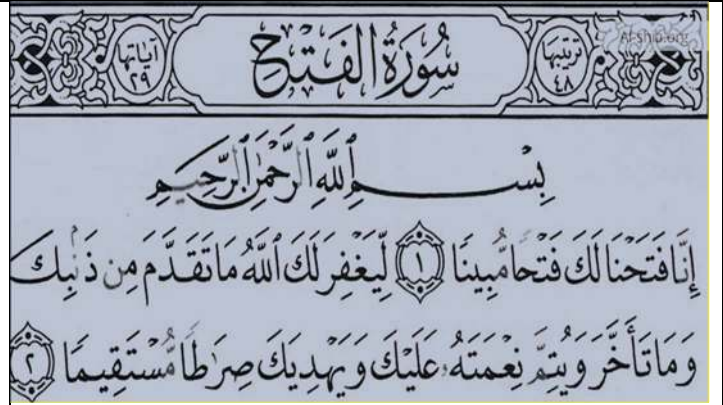 ترتيبها ٤٨ سُورَةُ الفَتْحِ آياتها ٢٩
Al-shia.org
بِسْمِ اللَّهِ الرَّحْمَٰنِ الرَّحِيمِ
إِنَّا فَتَحْنَا لَكَ فَتْحًا مُّبِينًا ١ لِّيَغْفِرَ لَكَ اللَّهُ مَا تَقَدَّمَ مِن ذَنۢبِكَ
وَمَا تَأَخَّرَ وَيُتِمَّ نِعْمَتَهُۥ عَلَيْكَ وَيَهْدِيَكَ صِرَٰطًا مُّسْتَقِيمًا ٢